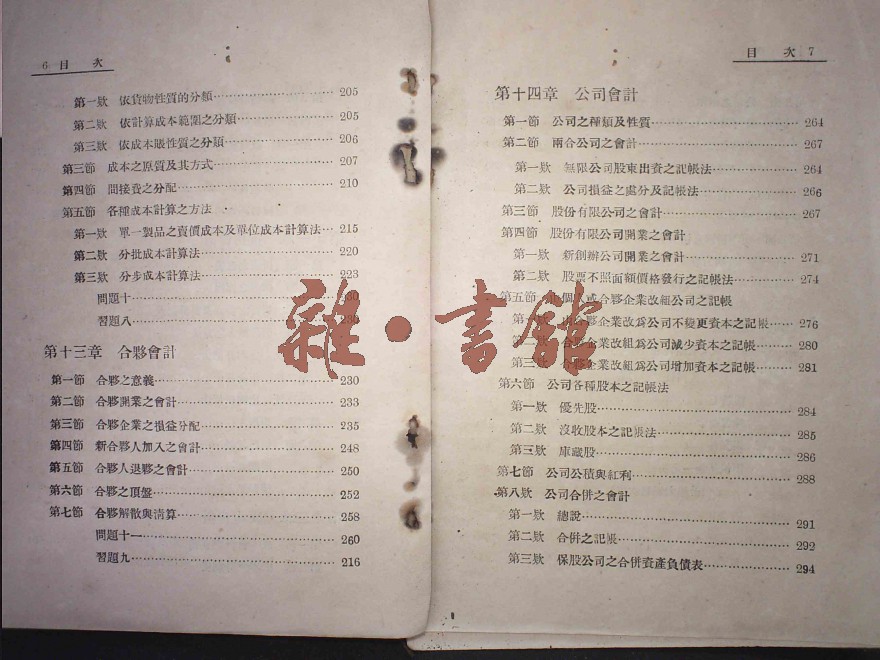 6 目 次
第一欵 依貨物性質的分類 205
第二欵 依計算成本範圍之分類 205
第三欵 依成本賬性質之分類 206
第三節 成本之原質及其方式 207
第四節 間接費之分配 210
第五節 各種成本計算之方法
第一欵 單一製品之賣價成本及單位成本計算法 215
第二欵 分批成本計算法 220
第三欵 分步成本計算法 223
問題十
習題八
第十三章 合夥會計
第一節 合夥之意義 230
第二節 合夥開業之會計 233
第三節 合夥企業之損益分配 235
第四節 新合夥人加入之會計 248
第五節 合夥人退夥之會計 250
第六節 合夥之頂盤 252
第七節 合夥解散與淸算 258
問題十一 260
習題九 216
目 次 7
第十四章 公司會計
第一節 公司之種類及性質 264
第二節 兩合公司之會計 267
第一欵 無限公司股東出資之記帳法 264
第二欵 公司損益之處分及記帳法 266
第三節 股份有限公司之會計 267
第四節 股份有限公司開業之會計
第一欵 新創辦公司開業之會計 271
第二欵 股票不照面額價格發行之記帳法 274
第五節 個 或合夥企業改組公司之記帳
第一欵 合夥企業改爲公司不變更資本之記帳 276
第二欵 合夥企業改組爲公司減少資本之記帳 280
第三欵 合夥企業改組爲公司增加資本之記帳 281
第六節 公司各種股本之記帳法
第一欵 優先股 284
第二欵 沒收股本之記帳法 285
第三欵 庫藏股 286
第七節 公司公積與紅利 288
第八欵 公司合併之會計
第一欵 總說 291
第二欵 合併之記帳 292
第三欵 保股公司之合併資產負債表 294
雜·書館